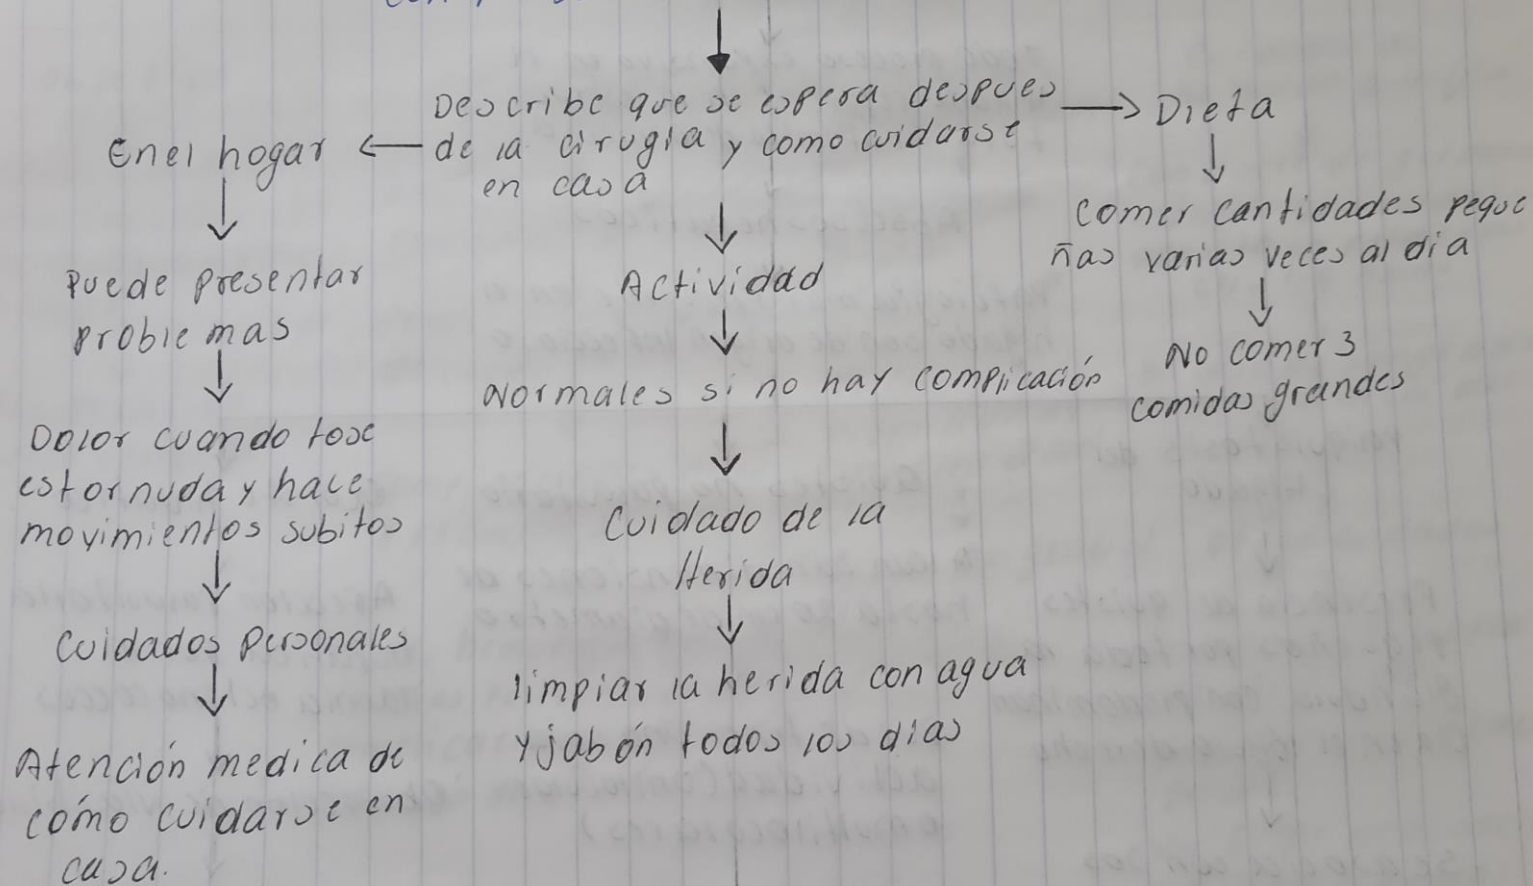 Describe que se espera despues
de la cirugía y como cuidarse
en casa
En el hogar
Puede presentar
problemas
Dolor cuando tose
estornuda y hace
movimientos subitos
Cuidados personales
Atención medica de
cómo cuidarse en
casa.
Actividad
Normales si no hay complicación
Cuidado de la
Herida
limpiar la herida con agua
y jabón todos los días
Dieta
Comer cantidades peque
ñas varias veces al día
No comer 3
comidas grandes